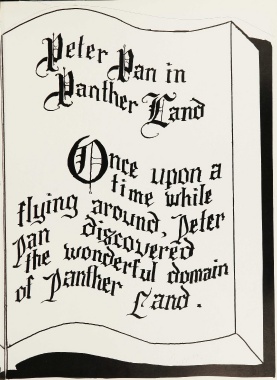 Peter Pan in
Panther Land
Once upon a
time while
flying around, Peter
Pan discovered
the wonderful domain
of Panther Land.